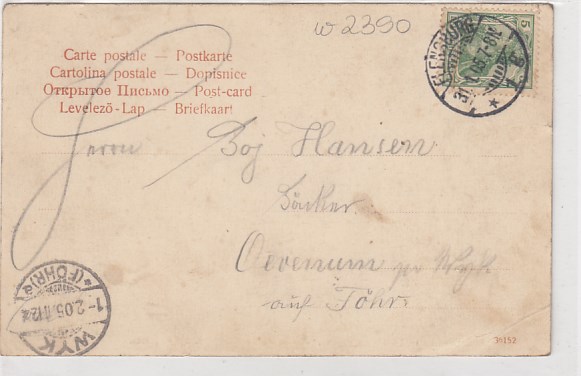 w 2390
Carte postale — Postkarte
Cartolina postale — Dopisnice
Открытое Письмо — Post-card
Levelező-Lap — Briefkaart
5
FLENSBURG
31.1.05.7-8N.
Herrn Boj Hansen
Bäcker
Oevenum pr Wyk
auf Föhr.
WYK
1-2.05.
*(FÖHR)*